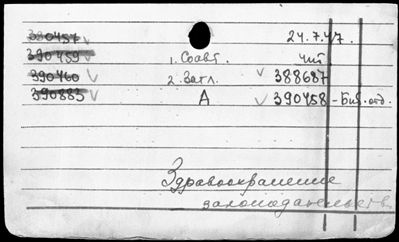 390457 24.7.47.
390459 √ 1. Соавт. чит.
390460 √ 2. Загл. √ 388687
390883 √ А √ 390458 - Биб. отд.
Здравоохранение
законодательств.